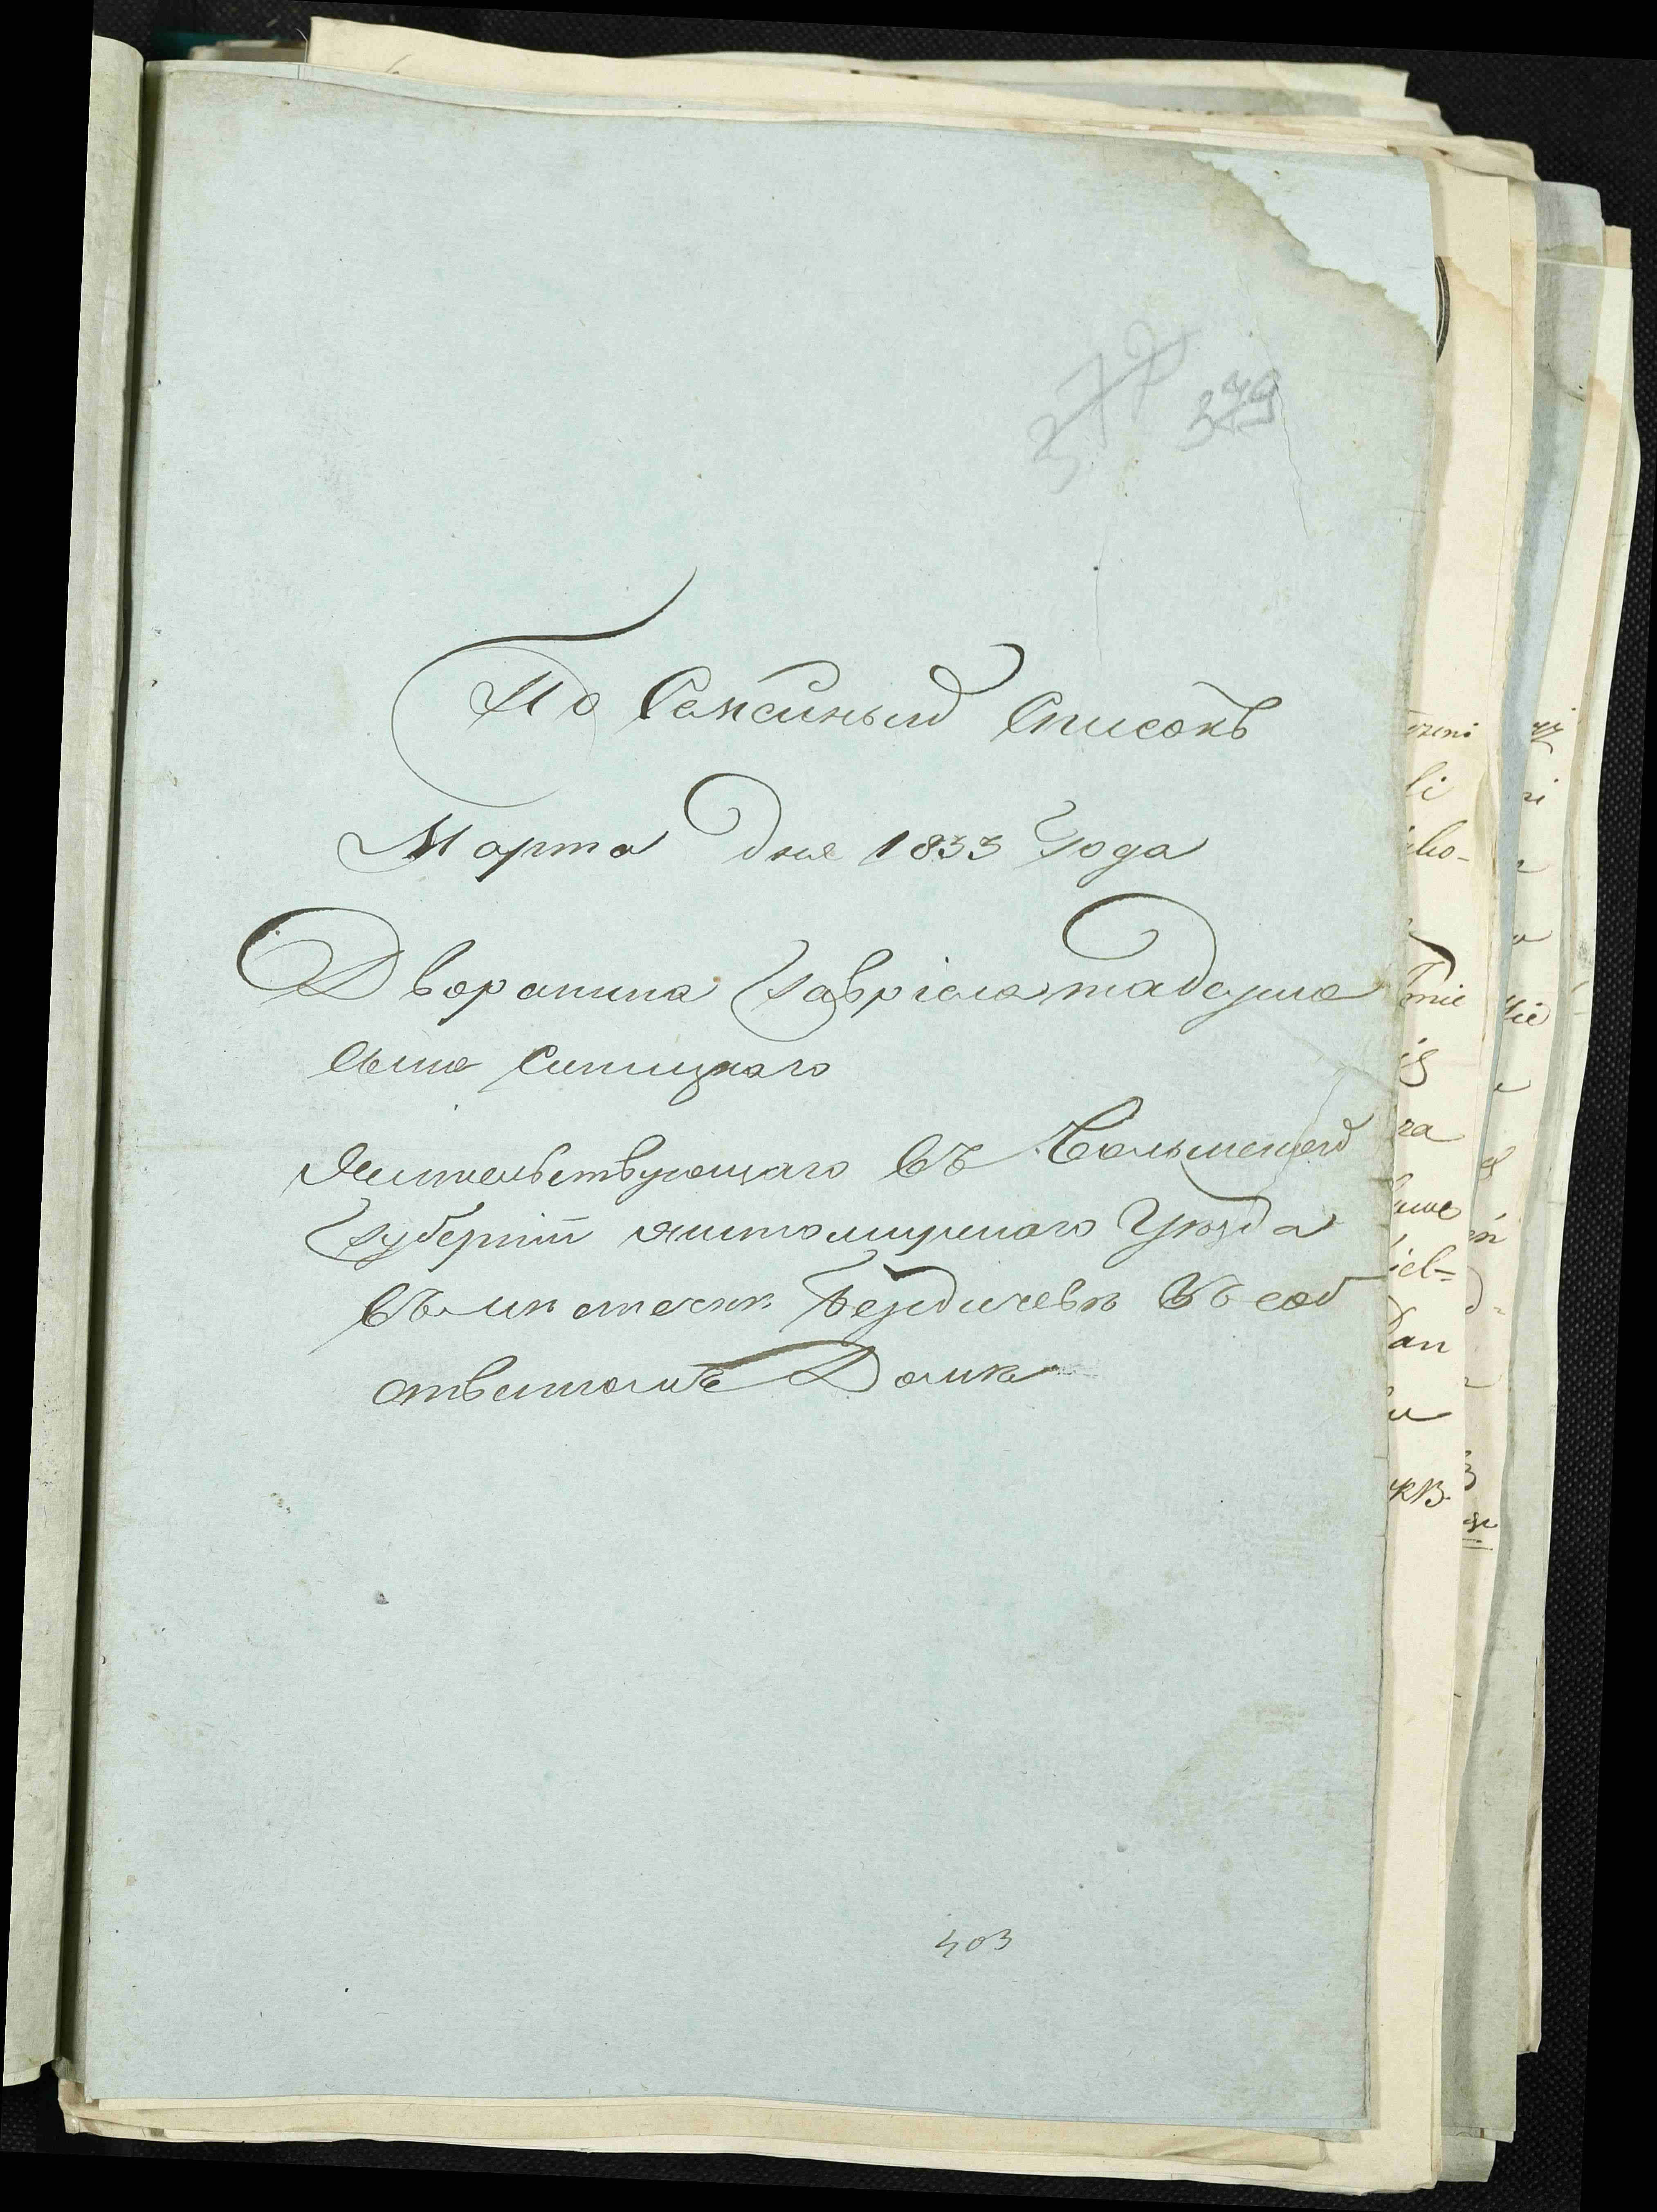 377 379
По Семейный Списокъ
Марта дня 1833 Года
Дворанина Гавріела тадеуша
сына Синицкаго
Жительствующаго въ Волынской
Губерніи житомирскаго Уезда
въ местечки Бездичеви Въ соб
ственомъ Доми
403